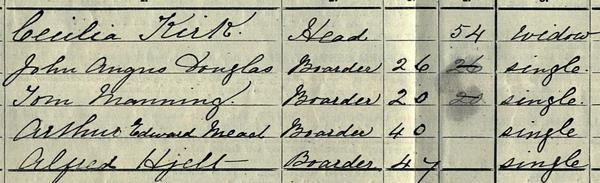 Cecilia Kirk. Head 54 Widow
John Angus Douglas Boarder 26 26 single.
Tom Manning. Boarder 20 20 single.
Arthur Edward Meach Boarder 40 single
Alfred Hjelt Boarder. 47 single